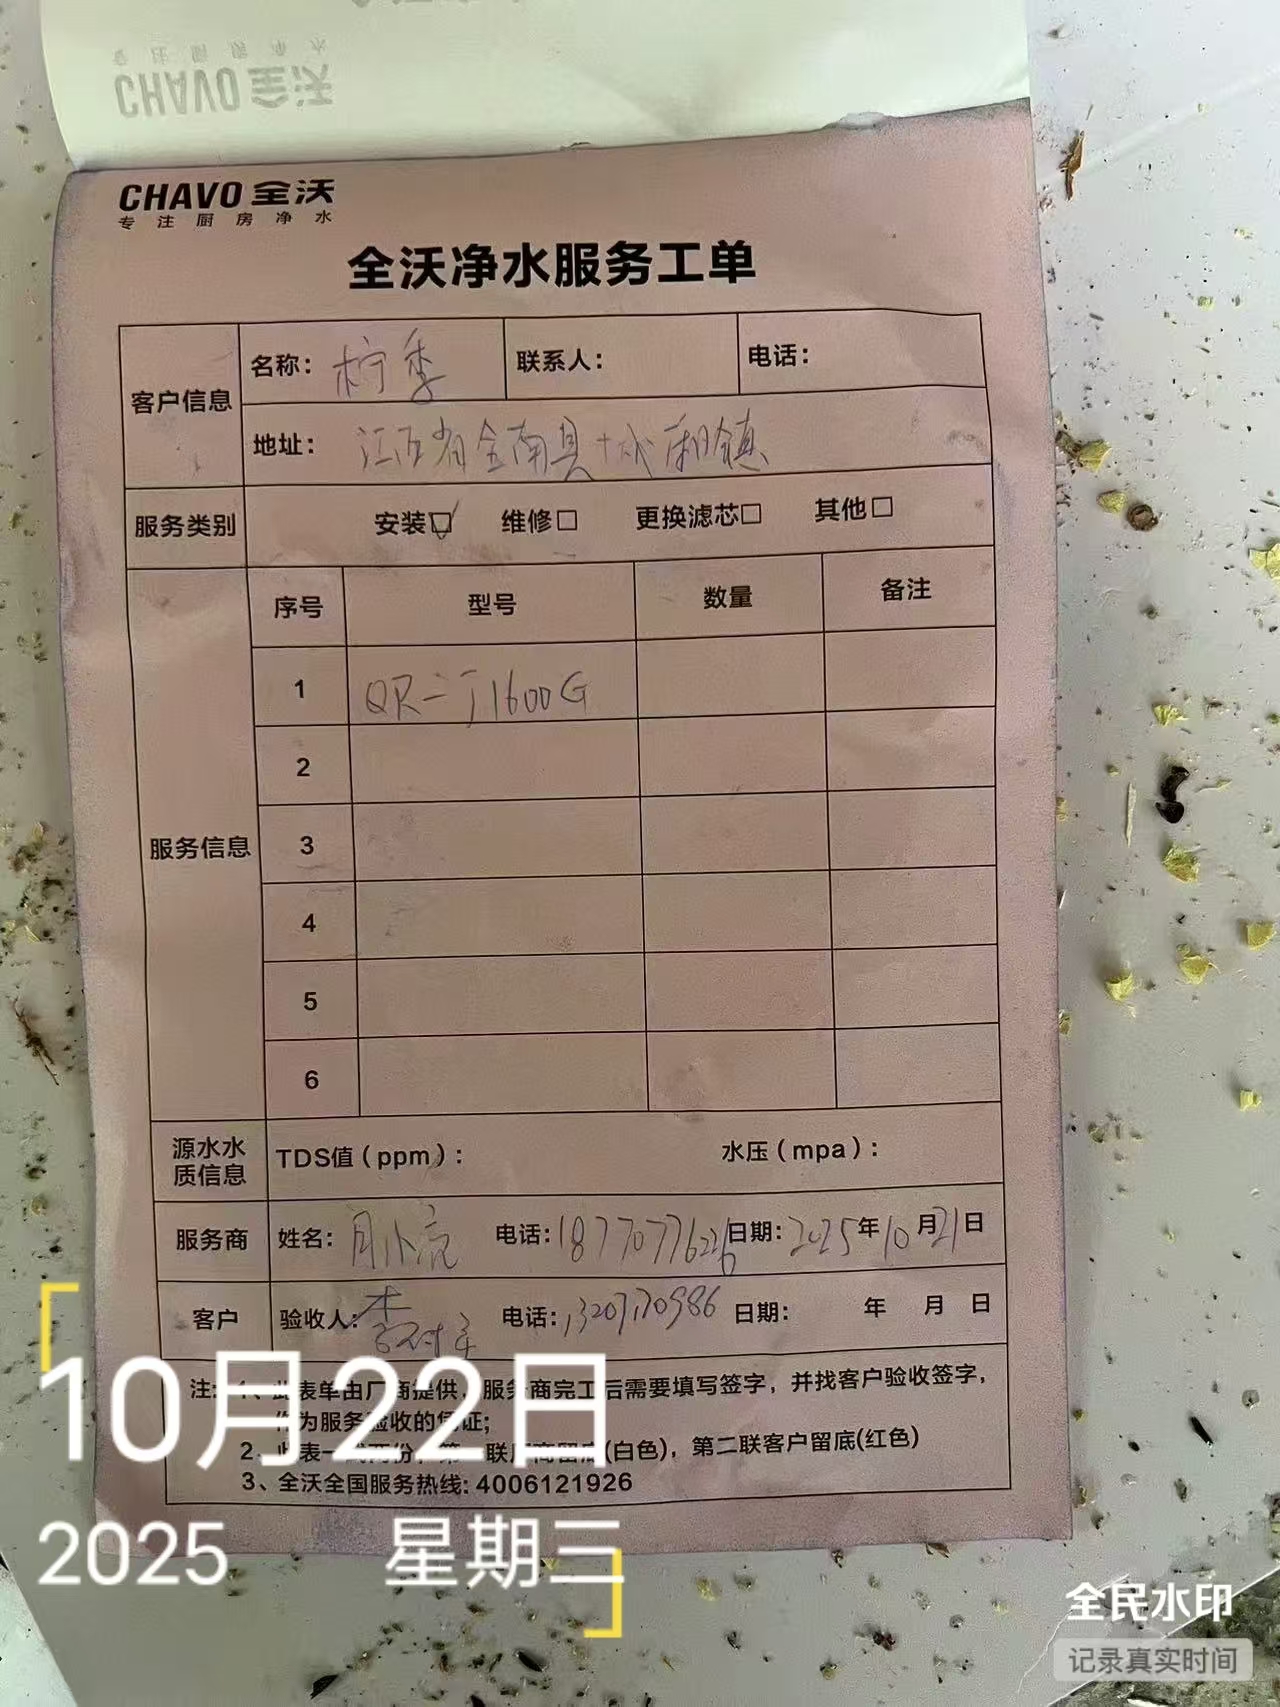 CHAVO 全沃
专注厨房净水
CHAVO 全沃
专注厨房净水
全沃净水服务工单
客户信息
名称：柠季 联系人： 电话：
地址：江西省全南县城厢镇
服务类别 安装☑ 维修□ 更换滤芯□ 其他□
服务信息
序号 型号 数量 备注
1 1600G
2
3
4
5
6
源水水质信息 TDS值（ppm）： 水压（mpa）：
服务商 姓名： 电话：18770776226 日期：2025年10月21日
客户 验收人：李 电话： 日期： 年 月 日
注：1、此表单由厂商提供，服务商完工后需要填写签字，并找客户验收签字，
作为服务验收的凭证；
2、此表一式两份，第一联厂商留底(白色)，第二联客户留底(红色)
3、全沃全国服务热线: 4006121926
10月22日
2025 星期三
全民水印
记录真实时间